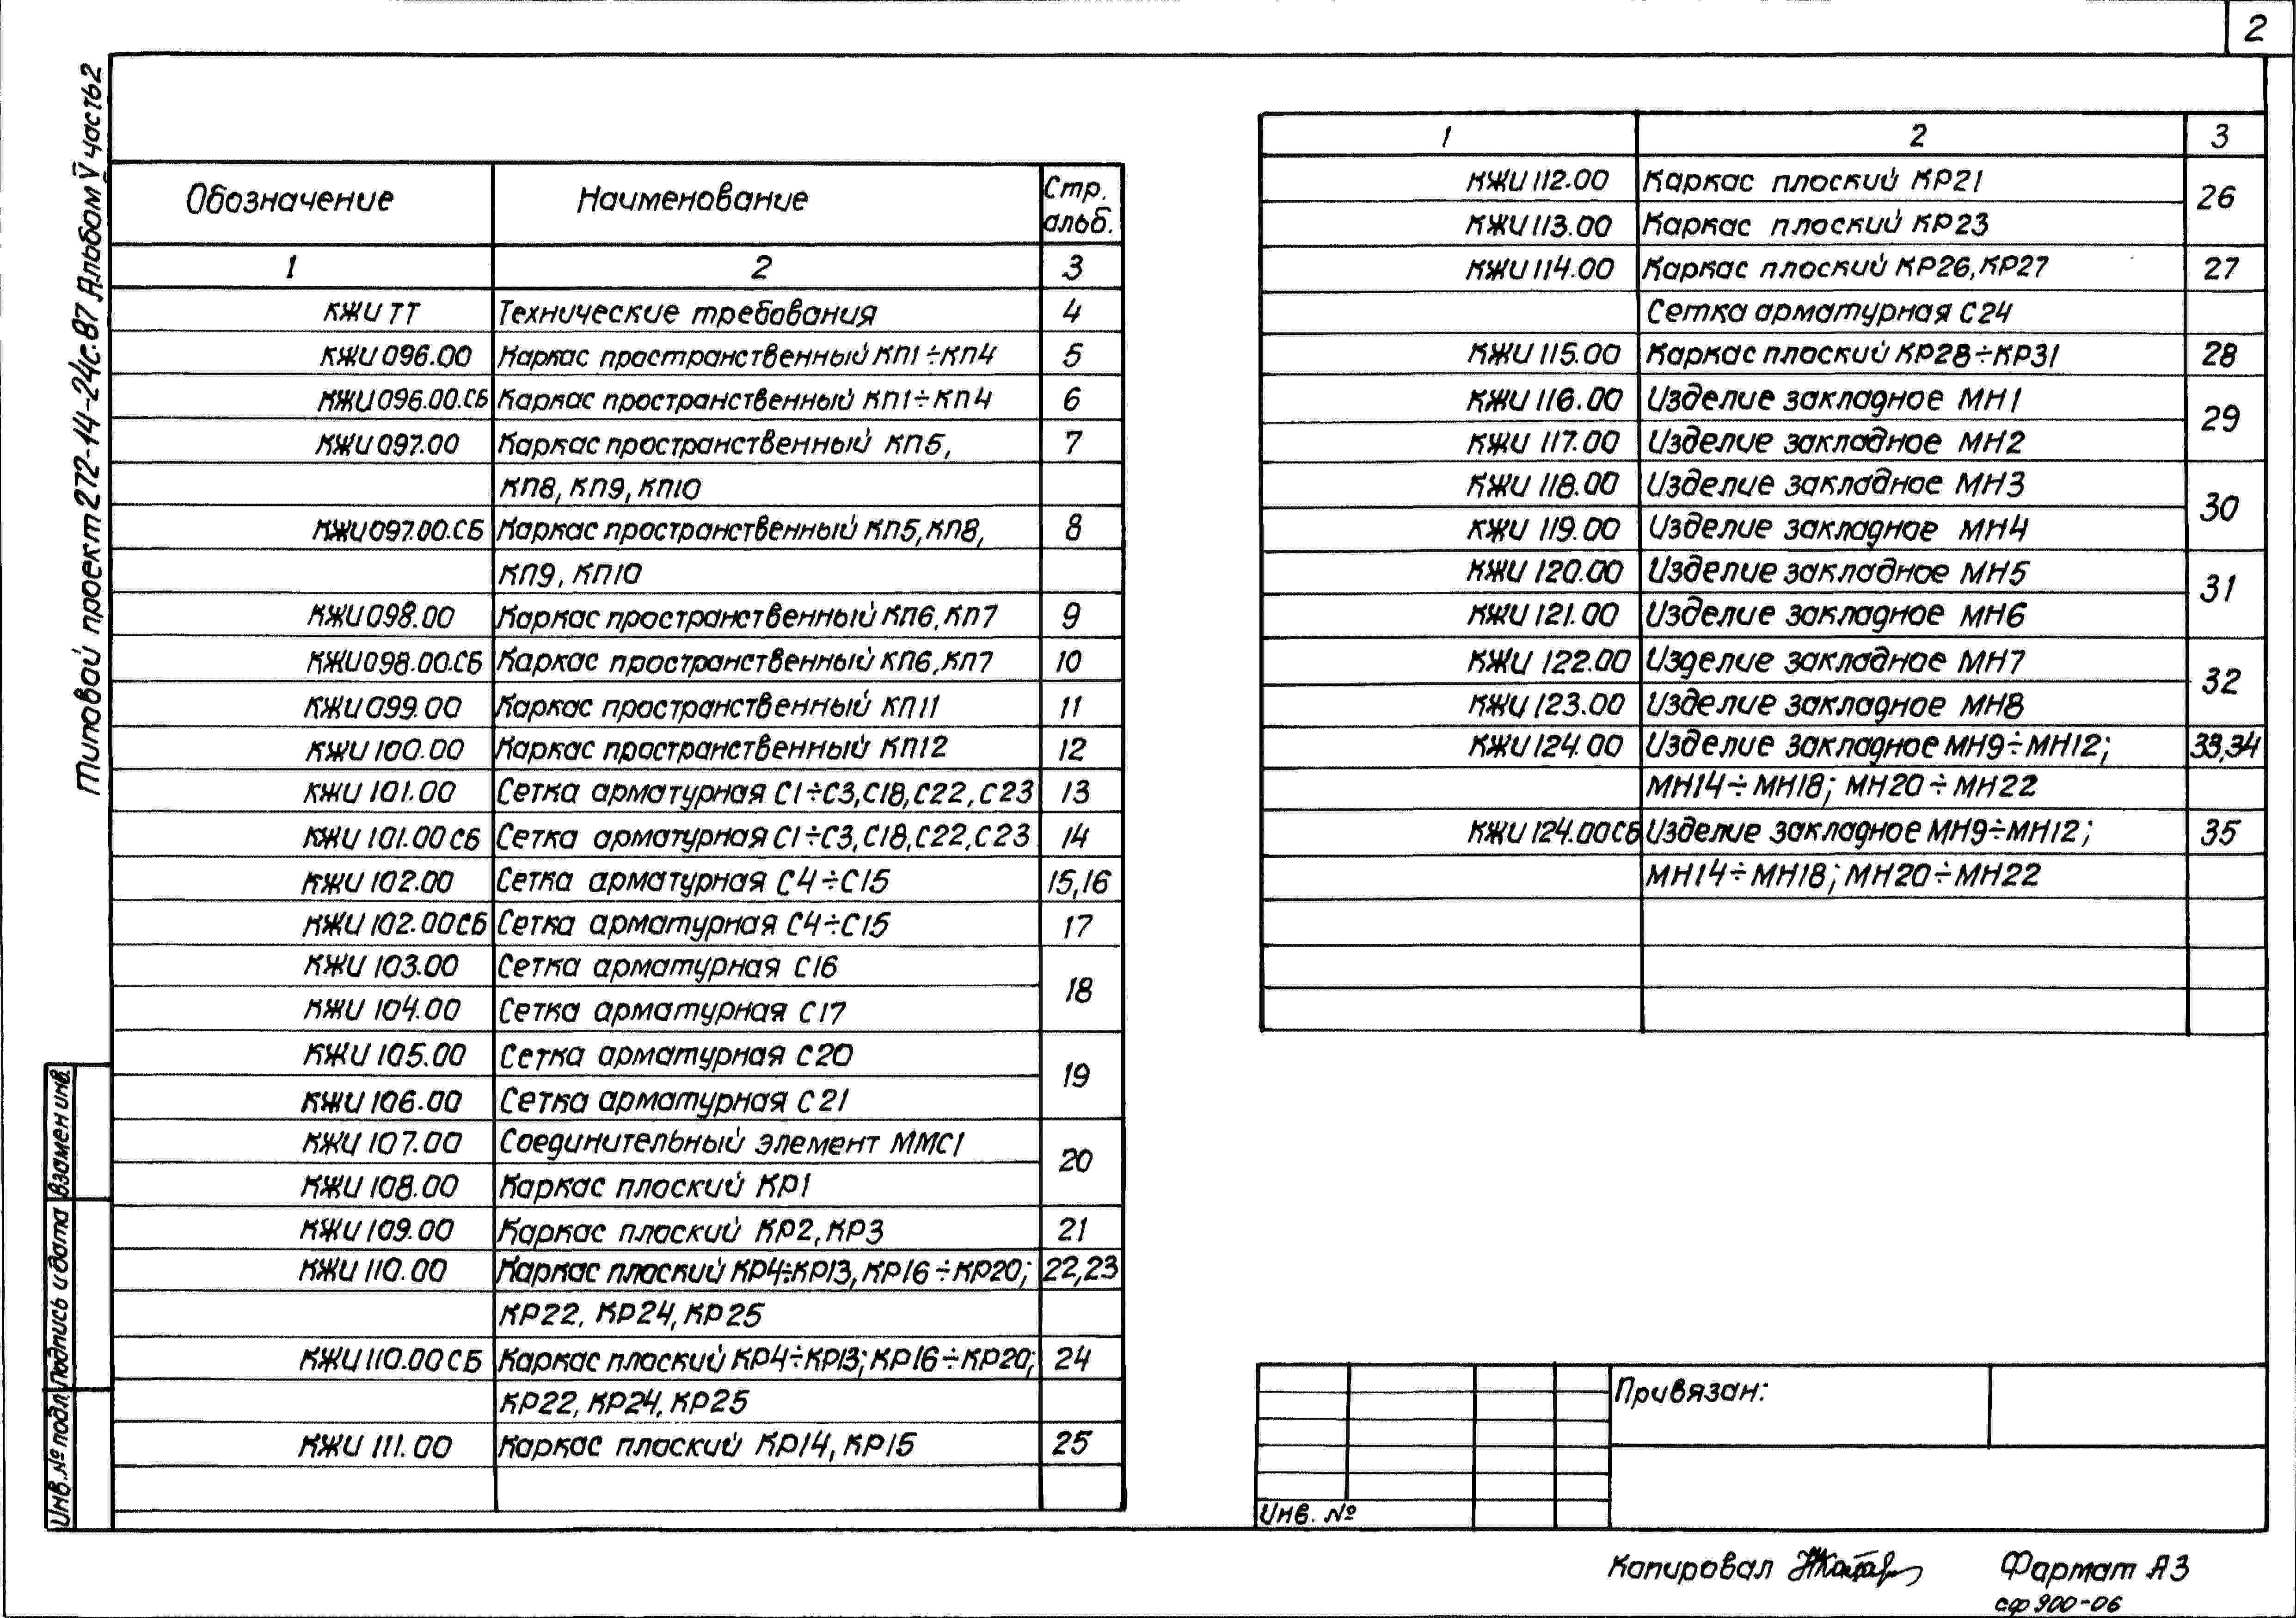 2
Типовой проект 272-14-24с.87 Альбом V часть 2
Обозначение Наименование Стр. альб.
1 2 3
КЖИ ТТ Технические требования 4
КЖИ 096.00 Каркас пространственный КП1÷КП4 5
КЖИ 096.00.СБ Каркас пространственный КП1÷КП4 6
КЖИ 097.00 Каркас пространственный КП5, 7
КП8, КП9, КП10
КЖИ 097.00.СБ Каркас пространственный КП5, КП8, 8
КП9, КП10
КЖИ 098.00 Каркас пространственный КП6, КП7 9
КЖИ 098.00.СБ Каркас пространственный КП6, КП7 10
КЖИ 099.00 Каркас пространственный КП11 11
КЖИ 100.00 Каркас пространственный КП12 12
КЖИ 101.00 Сетка арматурная С1÷С3, С18, С22, С23 13
КЖИ 101.00 СБ Сетка арматурная С1÷С3, С18, С22, С23 14
КЖИ 102.00 Сетка арматурная С4÷С15 15,16
КЖИ 102.00 СБ Сетка арматурная С4÷С15 17
КЖИ 103.00 Сетка арматурная С16 18
КЖИ 104.00 Сетка арматурная С17
КЖИ 105.00 Сетка арматурная С20 19
КЖИ 106.00 Сетка арматурная С21
КЖИ 107.00 Соединительный элемент ММС1 20
КЖИ 108.00 Каркас плоский КР1
КЖИ 109.00 Каркас плоский КР2, КР3 21
КЖИ 110.00 Каркас плоский КР4÷КР13, КР16÷КР20; 22,23
КР22, КР24, КР25
КЖИ 110.00 СБ Каркас плоский КР4÷КР13; КР16÷КР20; 24
КР22, КР24, КР25
КЖИ 111.00 Каркас плоский КР14, КР15 25
1 2 3
КЖИ 112.00 Каркас плоский КР21 26
КЖИ 113.00 Каркас плоский КР23
КЖИ 114.00 Каркас плоский КР26, КР27 27
Сетка арматурная С24
КЖИ 115.00 Каркас плоский КР28÷КР31 28
КЖИ 116.00 Изделие закладное МН1 29
КЖИ 117.00 Изделие закладное МН2
КЖИ 118.00 Изделие закладное МН3 30
КЖИ 119.00 Изделие закладное МН4
КЖИ 120.00 Изделие закладное МН5 31
КЖИ 121.00 Изделие закладное МН6
КЖИ 122.00 Изделие закладное МН7 32
КЖИ 123.00 Изделие закладное МН8
КЖИ 124.00 Изделие закладное МН9÷МН12; 33,34
МН14÷МН18; МН20÷МН22
КЖИ 124.00СБ Изделие закладное МН9÷МН12; 35
МН14÷МН18; МН20÷МН22
Взамен инв.
Подпись и дата
Инв. № подл.
Привязан:
Инв. №
Копировал Формат А3
сф 900-06